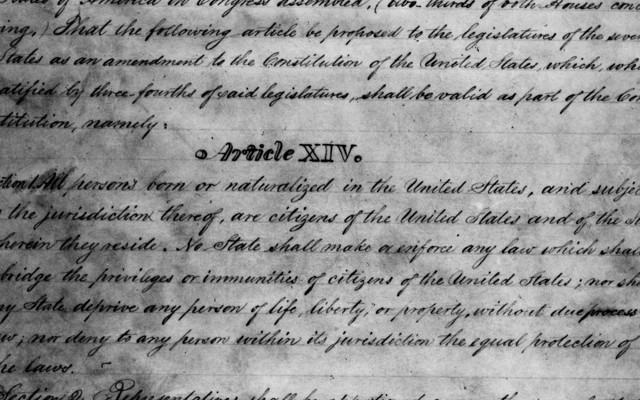 States of America in Congress assembled, (two-thirds of both Houses conc
ing,) That the following article be proposed to the legislatures of the seve
States as an amendment to the Constitution of the United States, which, wh
atified by three-fourths of said legislatures, shall be valid as part of the Con
titution, namely:
Article XIV.
ction 1. All persons born or naturalized in the United States, and subje
the jurisdiction thereof, are citizens of the United States and of the
herein they reside. No State shall make or enforce any law which shall
bridge the privileges or immunities of citizens of the United States; nor sha
ny State deprive any person of life, liberty, or property, without due process
w; nor deny to any person within its jurisdiction the equal protection of
he laws.
Section 2. Representatives shall be apportioned among the several